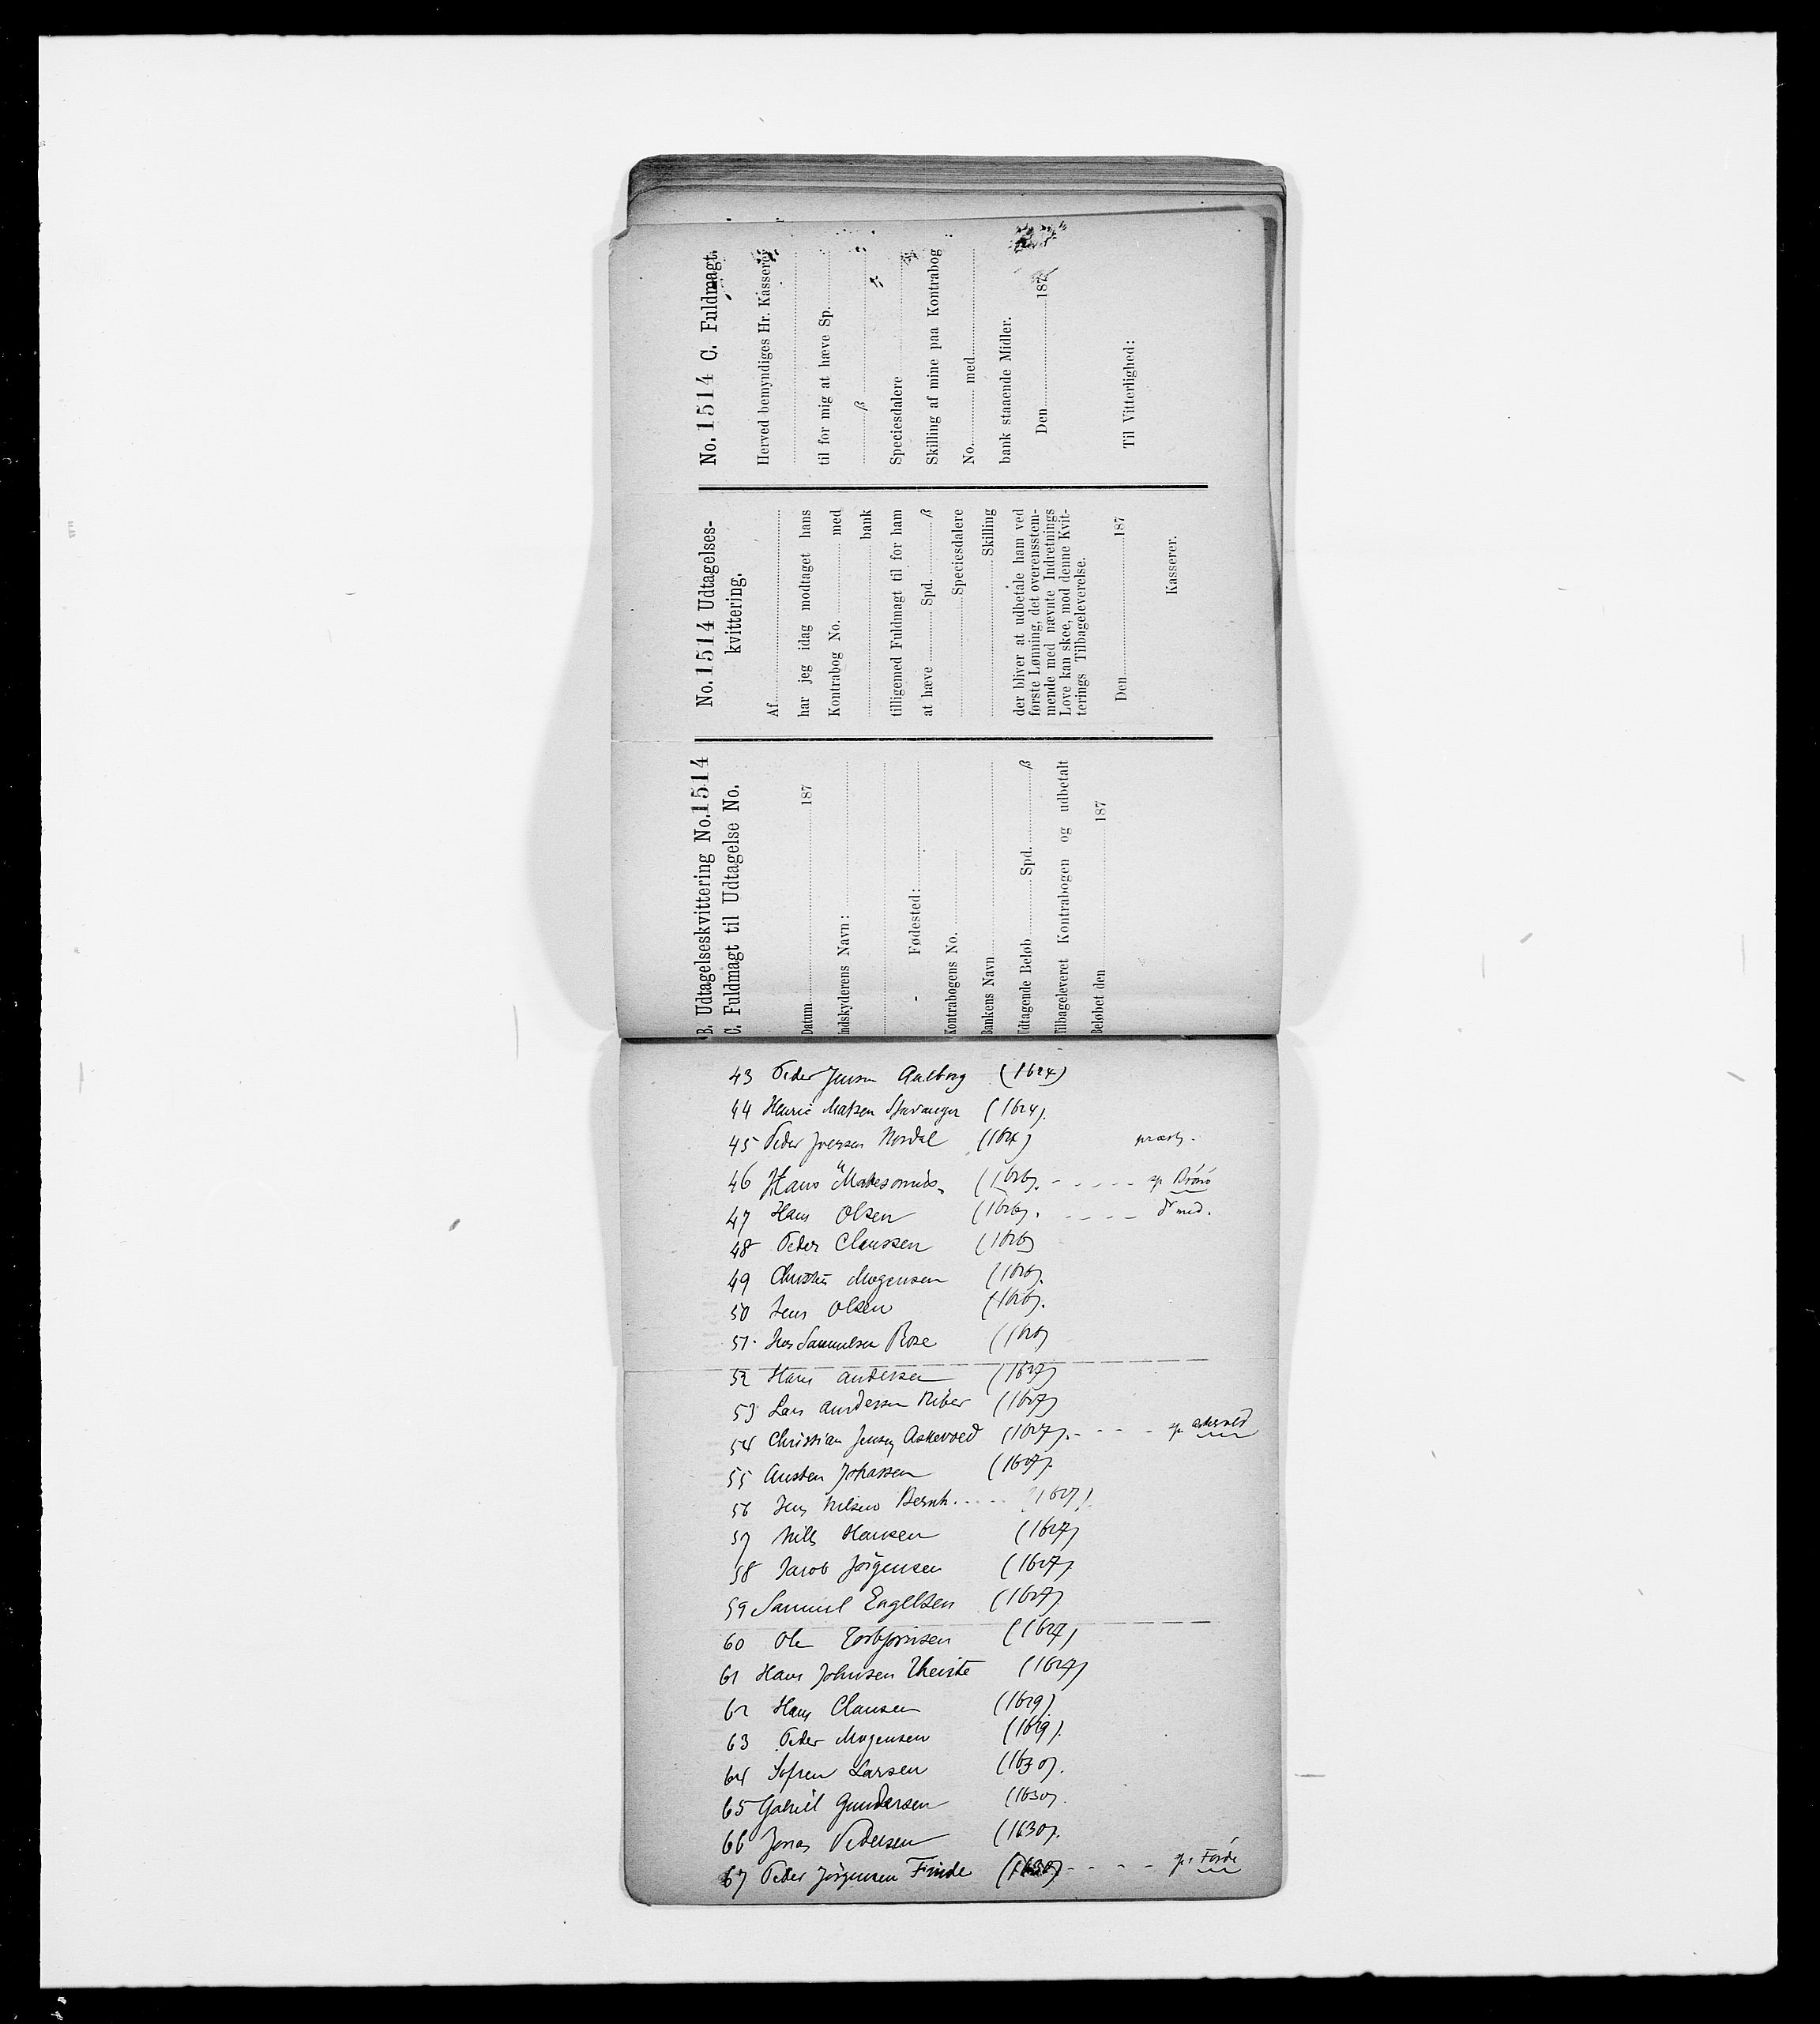 B. Udtagelseskvittering No. 1514
C. Fuldmagt til Udtagelse No.
Datum 187
Indskyderens Navn:
Fødested:
Kontrabogens No.
Bankens Navn
Udtagende Beløb Spd. ß
Tilbageleveret Kontrabogen og udbetalt
Beløbet den 187
No. 1514 Udtagelses-
kvittering.
Af
har jeg idag modtaget hans
Kontrabog No. med
bank
tilligemed Fuldmagt til for ham
at hæve Spd. ß
Speciesdalere
Skilling
der bliver at udbetale ham ved
første Lønning, det overensstem-
mende med nævnte Indretnings
Love kan skee, mod denne Kvit-
terings Tilbageleverelse.
Den 187
Kasserer.
No. 1514 C. Fuldmagt.
Herved bemyndiges Hr. Kasserer
til for mig at hæve Sp.
ß
Speciesdalere
Skilling af mine paa Kontrabog
No. med
bank staaende Midler.
Den 187
Til Vitterlighed:
43 Peder Jensen Aalborg (1624)
44 Henric Matsen Stavanger (1624).
45 Peder Iversen Nordal (1624)
46 Hans (1626). - - - - - sp
47 Hans Olsen (1626). - - - - Dr med.
48 Peder Claussen (1626)
49 Mogensen (1626).
50 Jens Olsen (1626).
51. Samuelsen Rose (1626)
52 Hans Andersen (1627)
53 Lars Andersen Riber (1627)
54 Christian Jensen Askevold (1627). - - - - sp Askevold
55 Austen Johassen (1627).
56 Jens Nilsen Bernh. . . . . (1627).
57 Nills Hansen (1627)
58 Jacob Jörgensen (1627).
59 Samuel Engelsen (1627)
60 Ole Torbjørnsen (1627)
61 Hans Johnsen Theiste (1627)
62 Hans Clausen (1629)
63 Peder Mogensen (1629).
64 Sofren Larsen (1630).
65 Gabriel Gundersen (1630).
66 Jonas Pedersen (1630).
67 Peder Jörgensen Finde (1630) - - - - sp. Förde